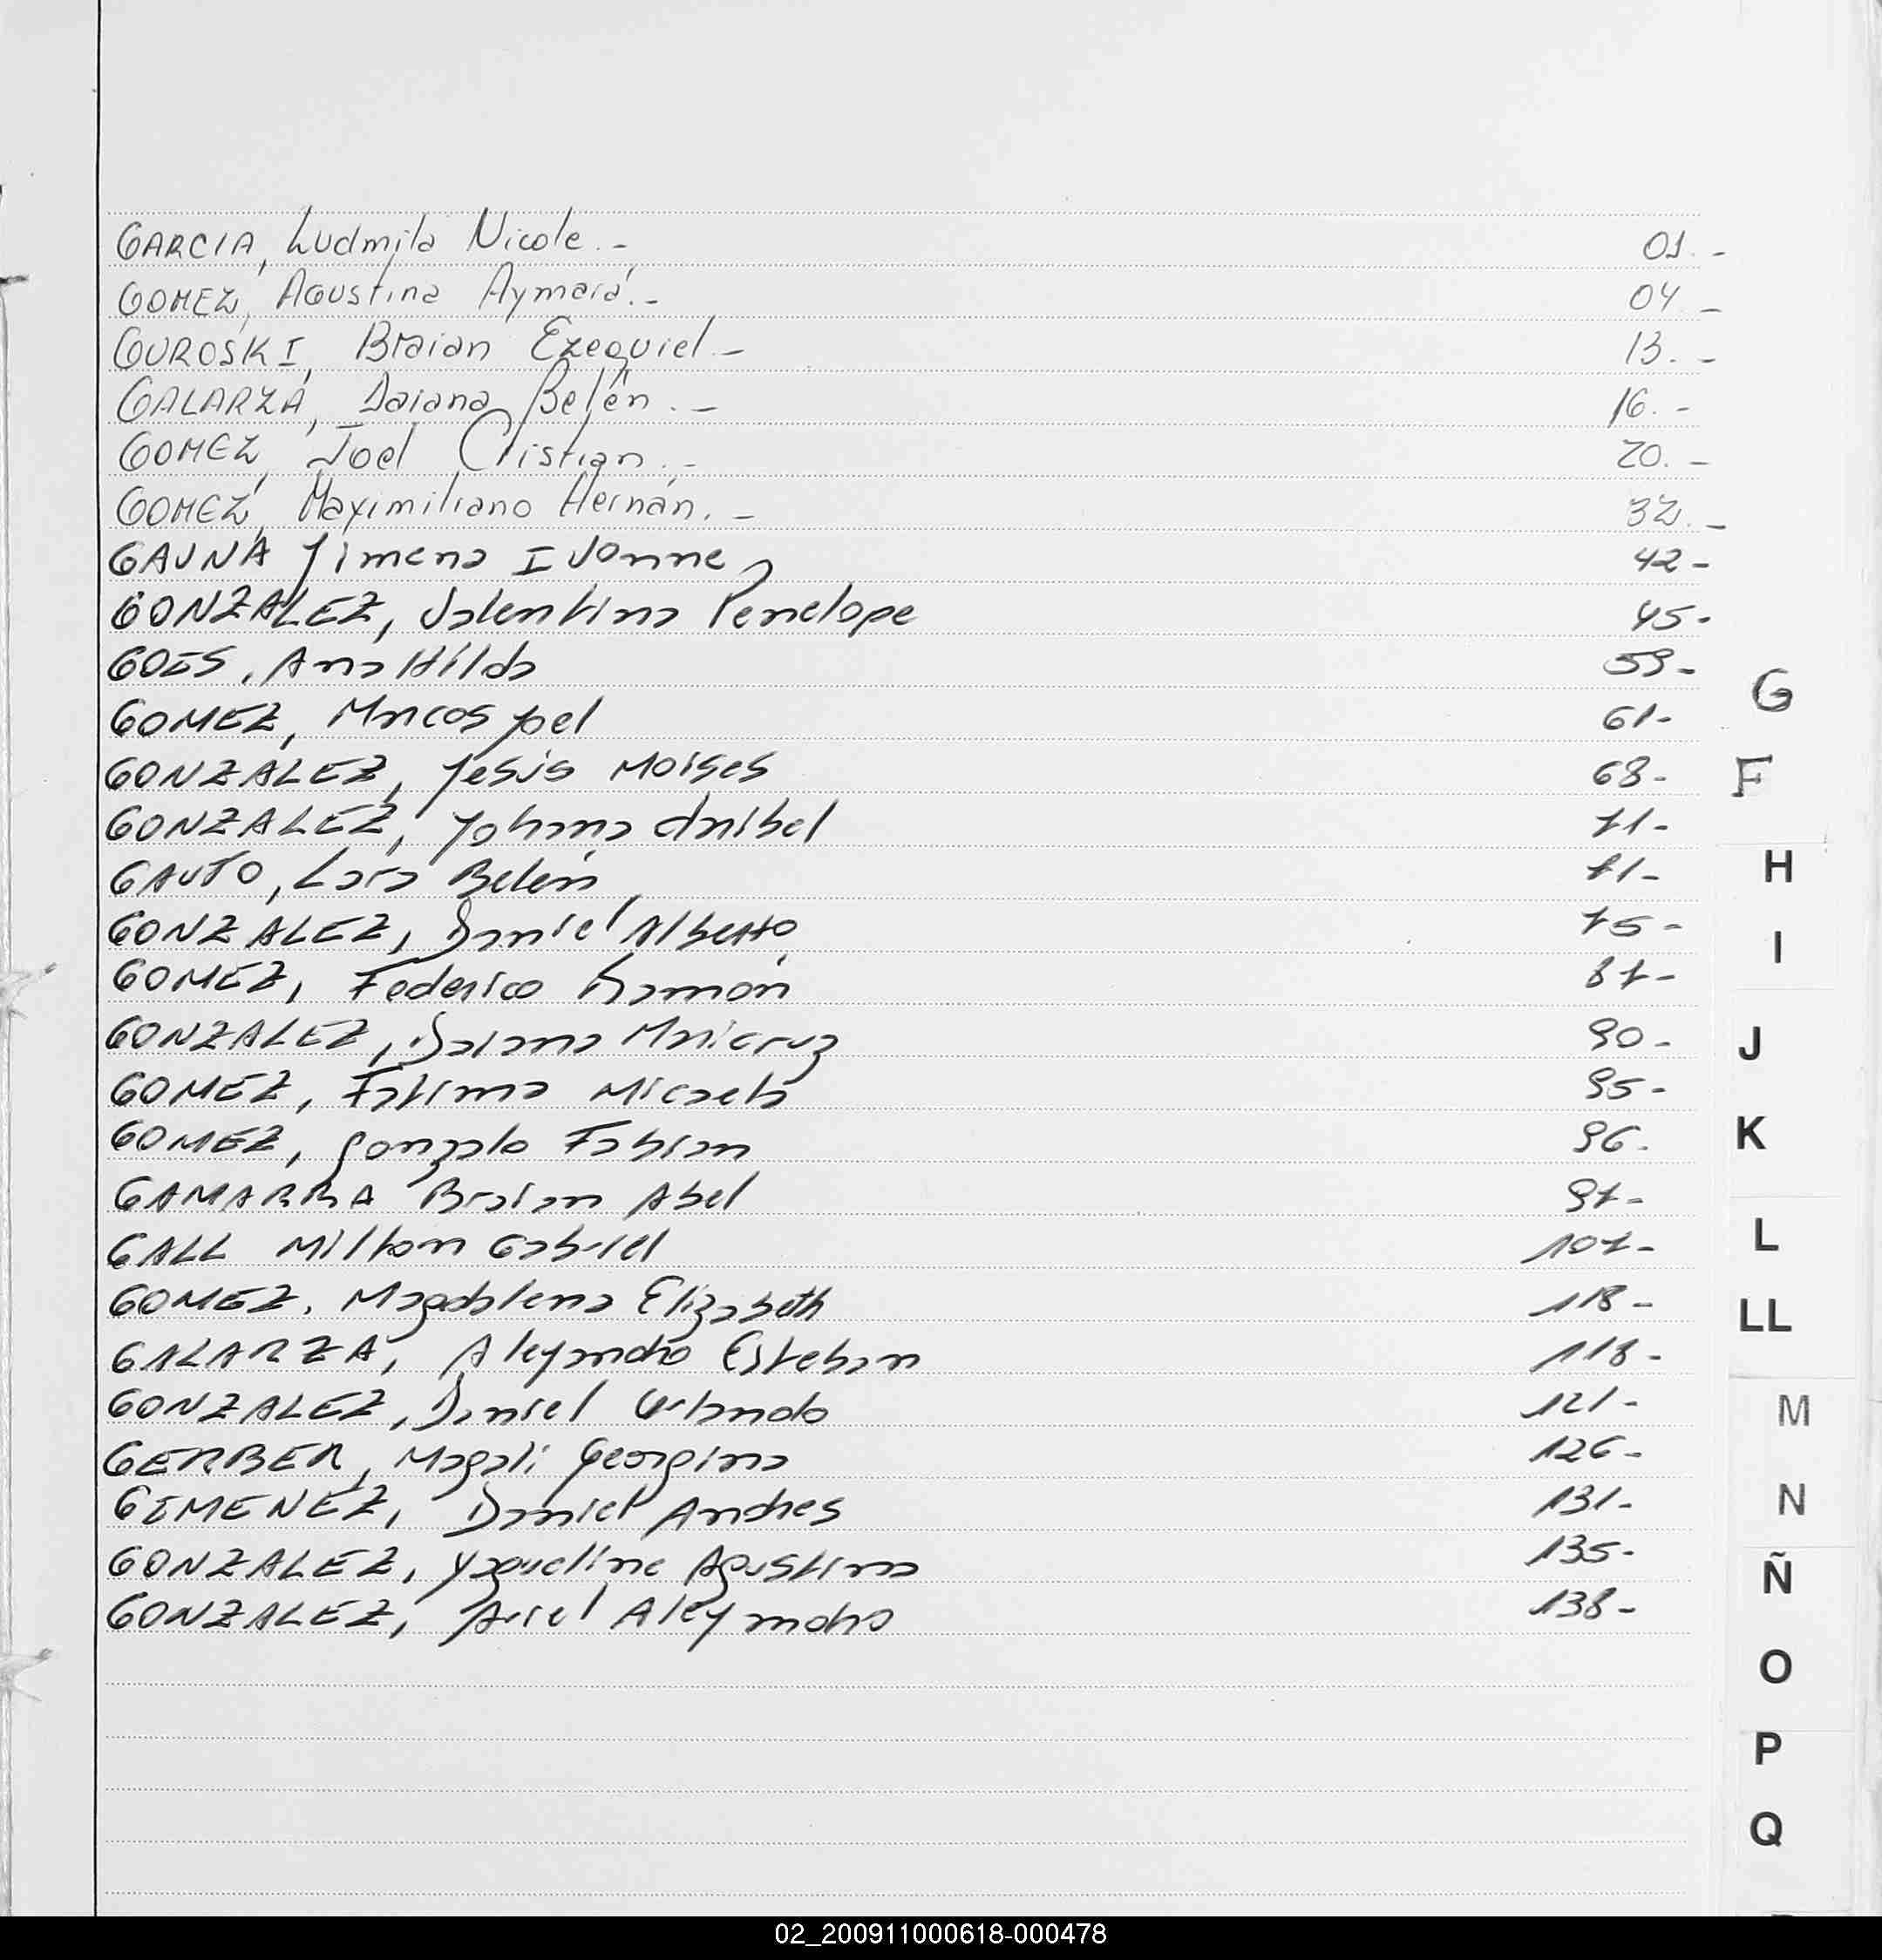 GARCIA, Ludmila Nicole.- 01.-
GOMEZ, Agustina Aymará.- 04.-
GUROSKI, Braian Ezequiel.- 13.-
GALARZA, Daiana Belén.- 16.-
GOMEZ, Joel Cristian.- 20.-
GOMEZ, Maximiliano Hernán.- 32.-
GAUNA Jimena Ivonne 42-
GONZALEZ, Valentina Penelope 45-
GOIS, Ana Hilda 59-
GOMEZ, Marcos Joel 61-
GONZALEZ, Jesús Moises 68-
GONZALEZ, Yohana Anibel 71-
GAUTO, Lara Belén 71-
GONZALEZ, Daniel Alberto 75-
GOMEZ, Federico Ramón 87-
GONZALEZ, Daiana Maricruz 90-
GOMEZ, Fatima Micaela 95-
GOMEZ, Gonzalo Fabian 96-
GAMARRA Braian Abel 97-
GALL Milton Gabriel 107-
GOMEZ, Magdalena Elizabeth 118-
GALARZA, Alejandro Esteban 118-
GONZALEZ, Daniel Orlando 121-
GERBER, Magali Georgina 126-
GIMENEZ, Daniel Andres 131-
GONZALEZ, Yaqueline Agustina 135-
GONZALEZ, Ariel Alejandro 138-
G
F
H
I
J
K
L
LL
M
N
Ñ
O
P
Q
02_200911000618-000478